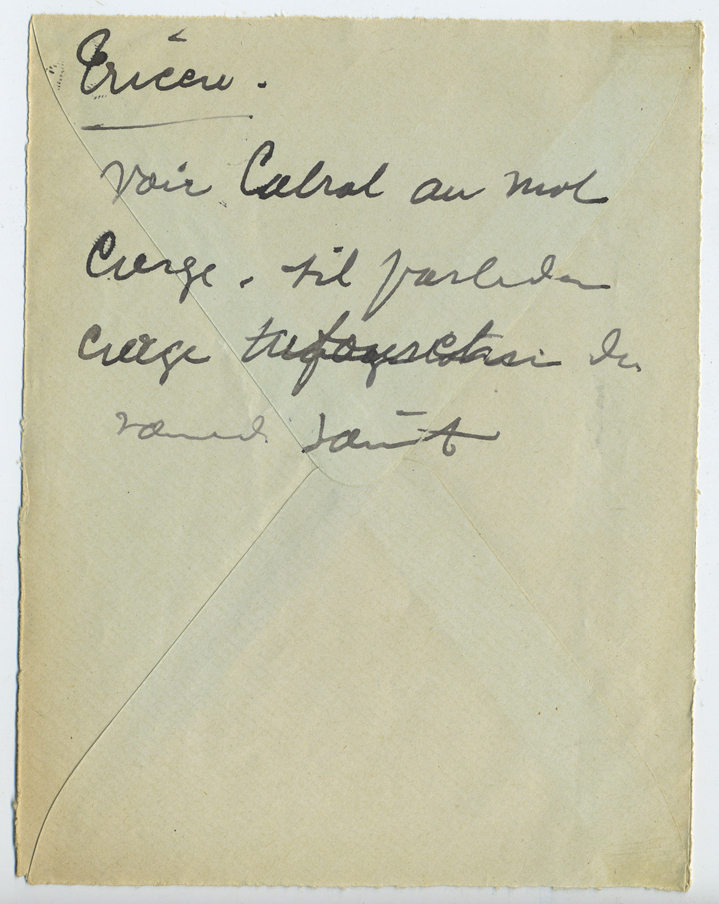 voir Cabral au mot
Cierge. s'il parle du
cierge du
samedi saint